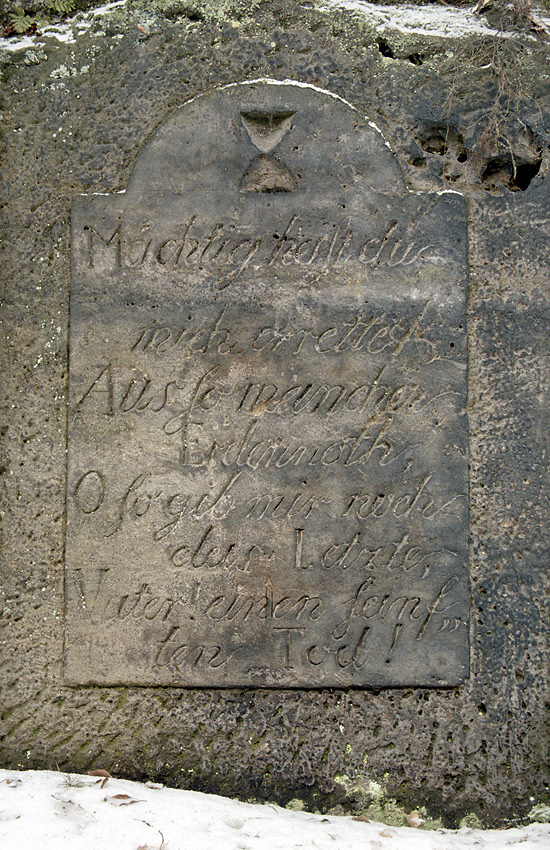 Mächtig haſt du
mich errettet
Aus ſo mancher
Erdennoth,
O ſo gib mir noch
das Letzte,
Vater! einen ſanf„
ten Tod!